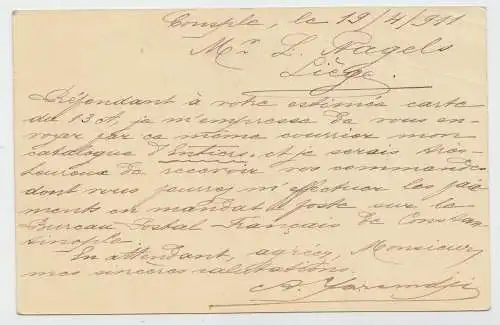 Consple, le 19/4/911
Mr. L. Nagels
Liège.
Répondant à votre estimée carte
du 13 ct, je m'empresse de vous en-
voyer par ce même courrier mon
catalogue d'Entiers, et je serais très
heureux de recevoir vos commandes
dont vous pourrez m'effectuer les paie-
ments en mandat poste sur le
Bureau Postal Français de Constan-
tinople.
En attendant, agréez, Monsieur,
mes sincères salutations.